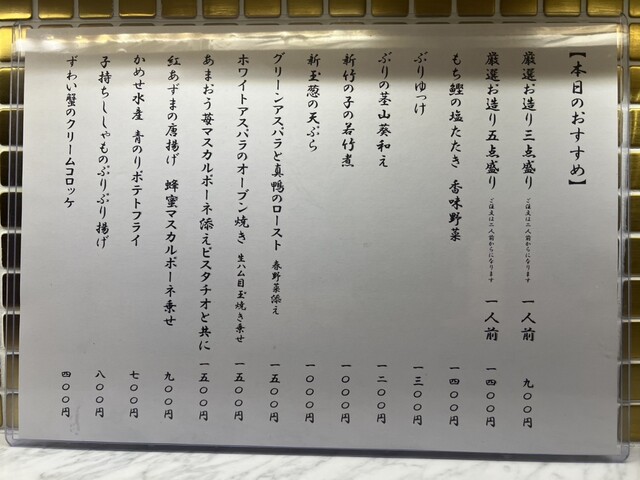 【本日のおすすめ】
厳選お造り三点盛り ご注文は二人前からになります 一人前 九〇〇円
厳選お造り五点盛り ご注文は二人前からになります 一人前 一四〇〇円
もち鰹の塩たたき 香味野菜 一四〇〇円
ぶりゆっけ 一三〇〇円
ぶりの茎山葵和え 一二〇〇円
新竹の子の若竹煮 一〇〇〇円
新玉葱の天ぷら 一〇〇〇円
グリーンアスパラと真鴨のロースト 春野菜添え 一五〇〇円
ホワイトアスパラのオーブン焼き 生ハム目玉焼き乗せ 一五〇〇円
あまおう苺マスカルポーネ添えピスタチオと共に 一五〇〇円
紅あずまの唐揚げ 蜂蜜マスカルポーネ乗せ 九〇〇円
かめせ水産 青のりポテトフライ 七〇〇円
子持ちししゃものぷりぷり揚げ 八〇〇円
ずわい蟹のクリームコロッケ 四〇〇円